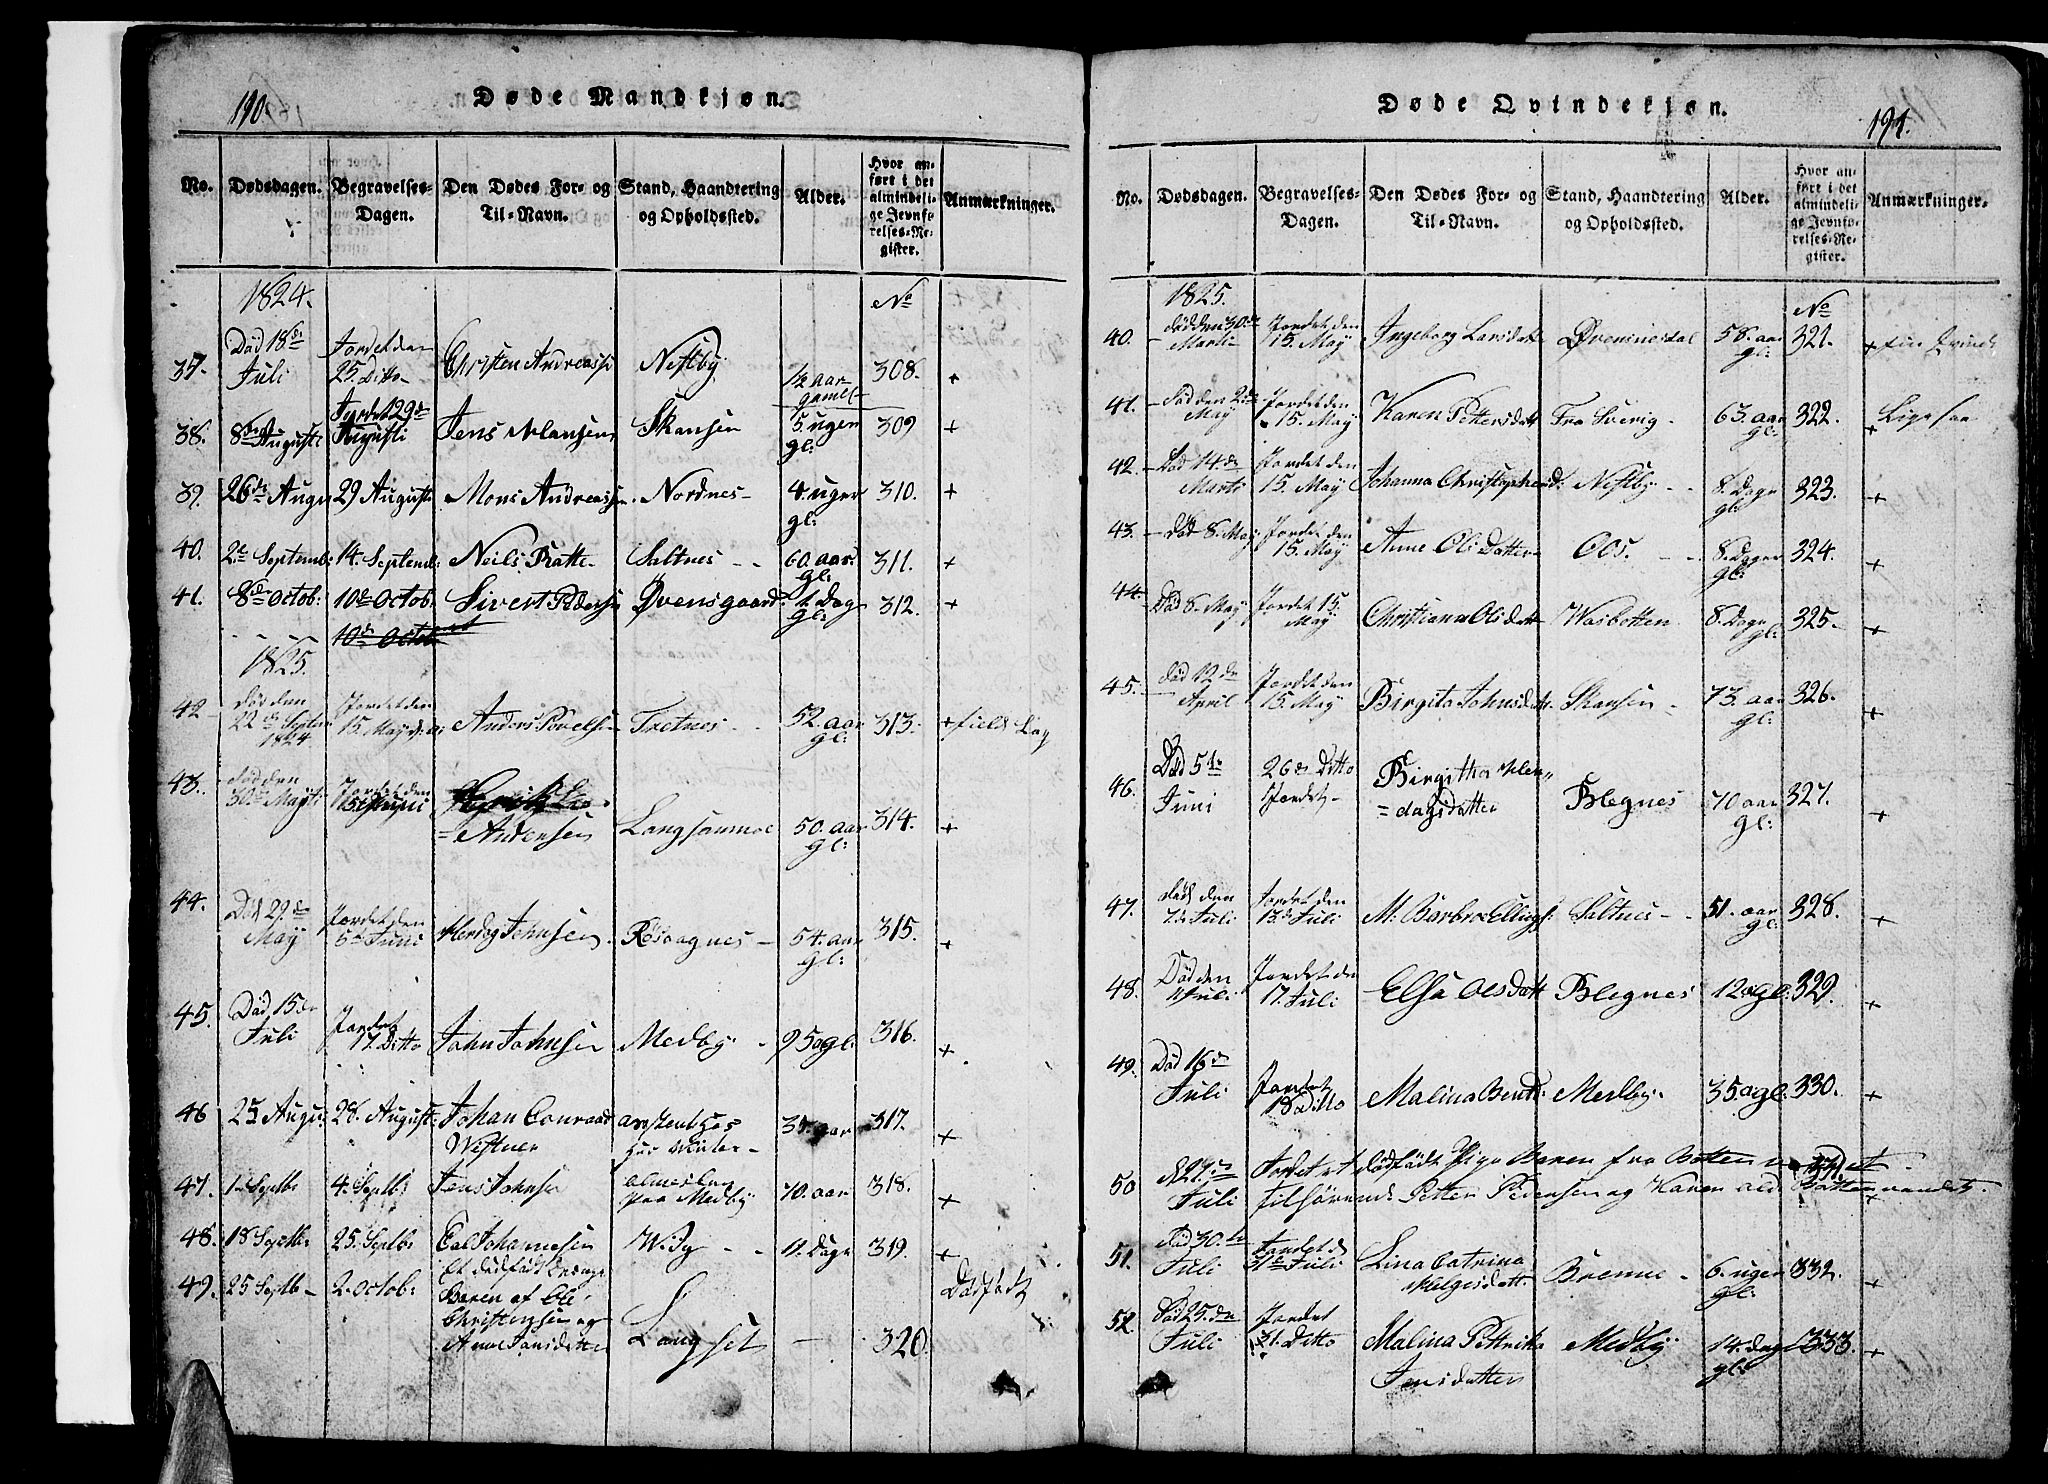 190.
Døde Mandkjøn.
No.
Dødsdagen.
Begravelses-
Dagen.
Den Dødes For- og
Til-Navn.
Stand, Haandtering
og Opholdssted.
Alder.
Hvor an-
ført i det
almindeli-
ge Jevnfø-
relses-Re-
gister.
Anmærkninger.
1824.
No
37. Død 18de Juli
Jordet den 25. Ditto
Christen Andreass Nestby 1/2 aar gamel 308. +
38. 8de Augusti Jordet 29de Augusti Jens Hansen Skansen 5 uger gl: 309 +
39. 26de Augu 29 Augusti Mons Andreassen Nordnes 4. uger gl: 310. +
40. 2de Septemb: 14. Septemb: Neils Bratte Saltnes 60. aar gl: 311. +
41. 8de Octob: 10de Octob. Sivert Pedersen Øvensgaard 1. Dag gl: 312. +
10de Octob
1825.
42 død den 22de Septem 1824. Jordet den 15. May Anders Povelsen Tretnes 52 aar gl: 313. +
43. død den 30de Jordet den Andersen Langsanmoe 50. aar gl: 314. +
44. Død 29de May Jordet den 5te Juni Johnsen Rosaagnes 54. aar gl: 315. +
45. Død 15de Juli Jordet 17. Ditto John Johnsen Medby 95 gl: 316. +
46 25 Augus: 28. August: Johan Conraad Westner 35. aar 317. +
47. 1. Septb 4. Septb: Jens Johnse paa Medby 70. aar 318. +
48. 18 Septb: 25. Septb: Johannesen Wiig 11. Dage 319. +
49. 25 Septb 2. Octob: Et dødfødt Drenge Baren af Ole Christensen og Anne Jansdatter Langset 320. Dødfødt
191.
Døde Qvindekjøn.
No.
Dødsdagen.
Begravelses-
Dagen.
Den Dødes For- og
Til-Navn.
Stand, Haandtering
og Opholdssted.
Alder.
Hvor an-
ført i det
almindeli-
ge Jevnfø-
relses-Re-
gister.
Anmærkninger.
1825.
No
40. død den 30. de Marti Jordet den 15. May Ingeborg Larsdat Øvensnesdal 58. aar gl: 321. +
41. død den 2. de May Jordet den 15. May Karen Pettersdatt Fra Sverig 63. aar gl: 322. + Lige saa
42. Død 14. de Marti Jordet den 15. May Johanna Christophersd: Nestby 8. Dage gl: 323. +
43. Død 8. May Jordet den 15. May Anne Ols Datter Oos. 8. Dage gl: 324. +
44. Død 8. May Jordet 15. May Christianna Olsdatt Wasbotten 8. Dage gl: 325. +
45. død 12 de April Jordet den 15. May Birgita Johnsdatt. Skansen 73. aar gl: 326. +
46. Død 5te Juni 26de Ditto Jordet Birgitha =dagsdatter Blegnes 70 aar gl: 327. +
47. død den 7de Juli Jordet den 13de Juli M: Barbro Ellings: Saltnes 51. aar gl: 328. +
48. Død den Juli Jordet den 17. Juli Elsa Olsdatt Blegnes 12 gl: 329. +
49. Død 16de Juli Jordet 18 Ditto Malina Bentd: Medby. 35 gl: 330. +
50 d. 24de Juli Jordet et dødfødt Pige Baren fra Botten
tilhørende Petter Pedersen og Karen ved Bottenvandet. +
51. død 30. te Juli Jordet d 31te Juli Lina Catrina Helgesdatt. Brenne 6. uger gl: 332. +
52. Død 25. de Juli Jordet 31. Ditto Malina Pettrika Jensdatter Medby 14. dage gl: 333. +